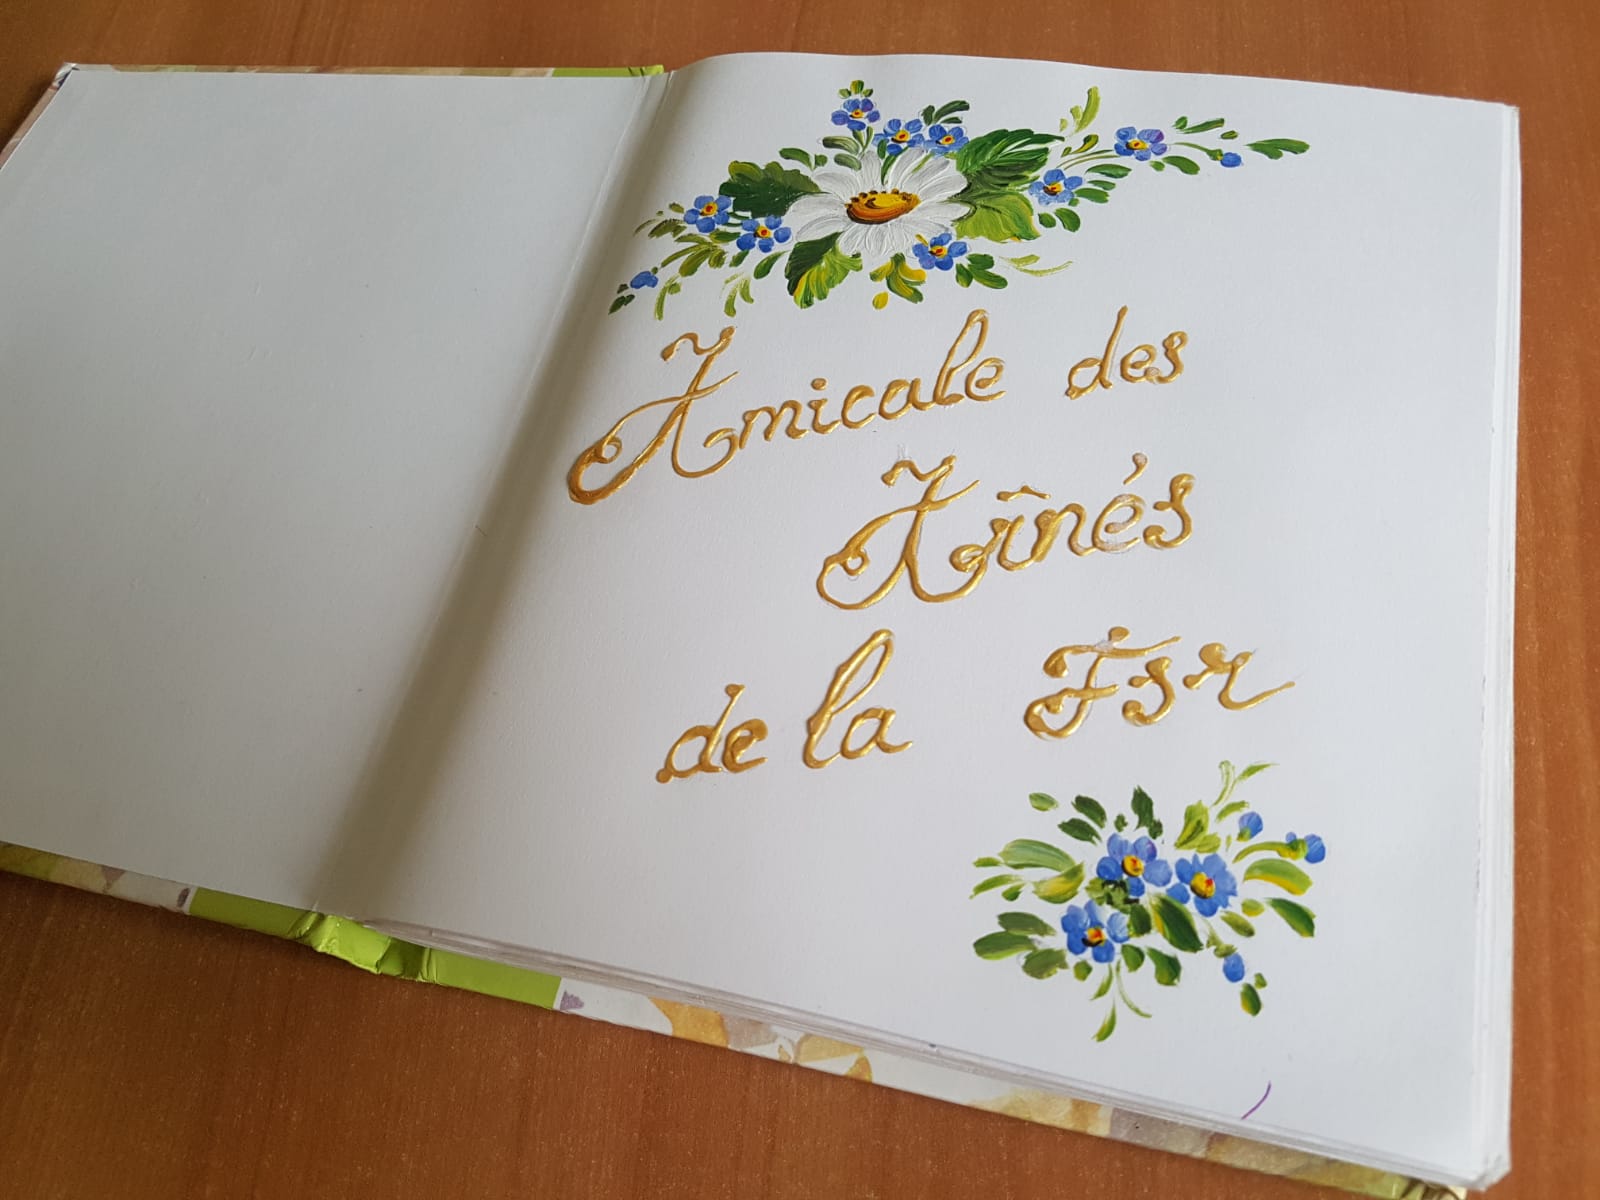 Amicale des
Aînés
de la Fsr